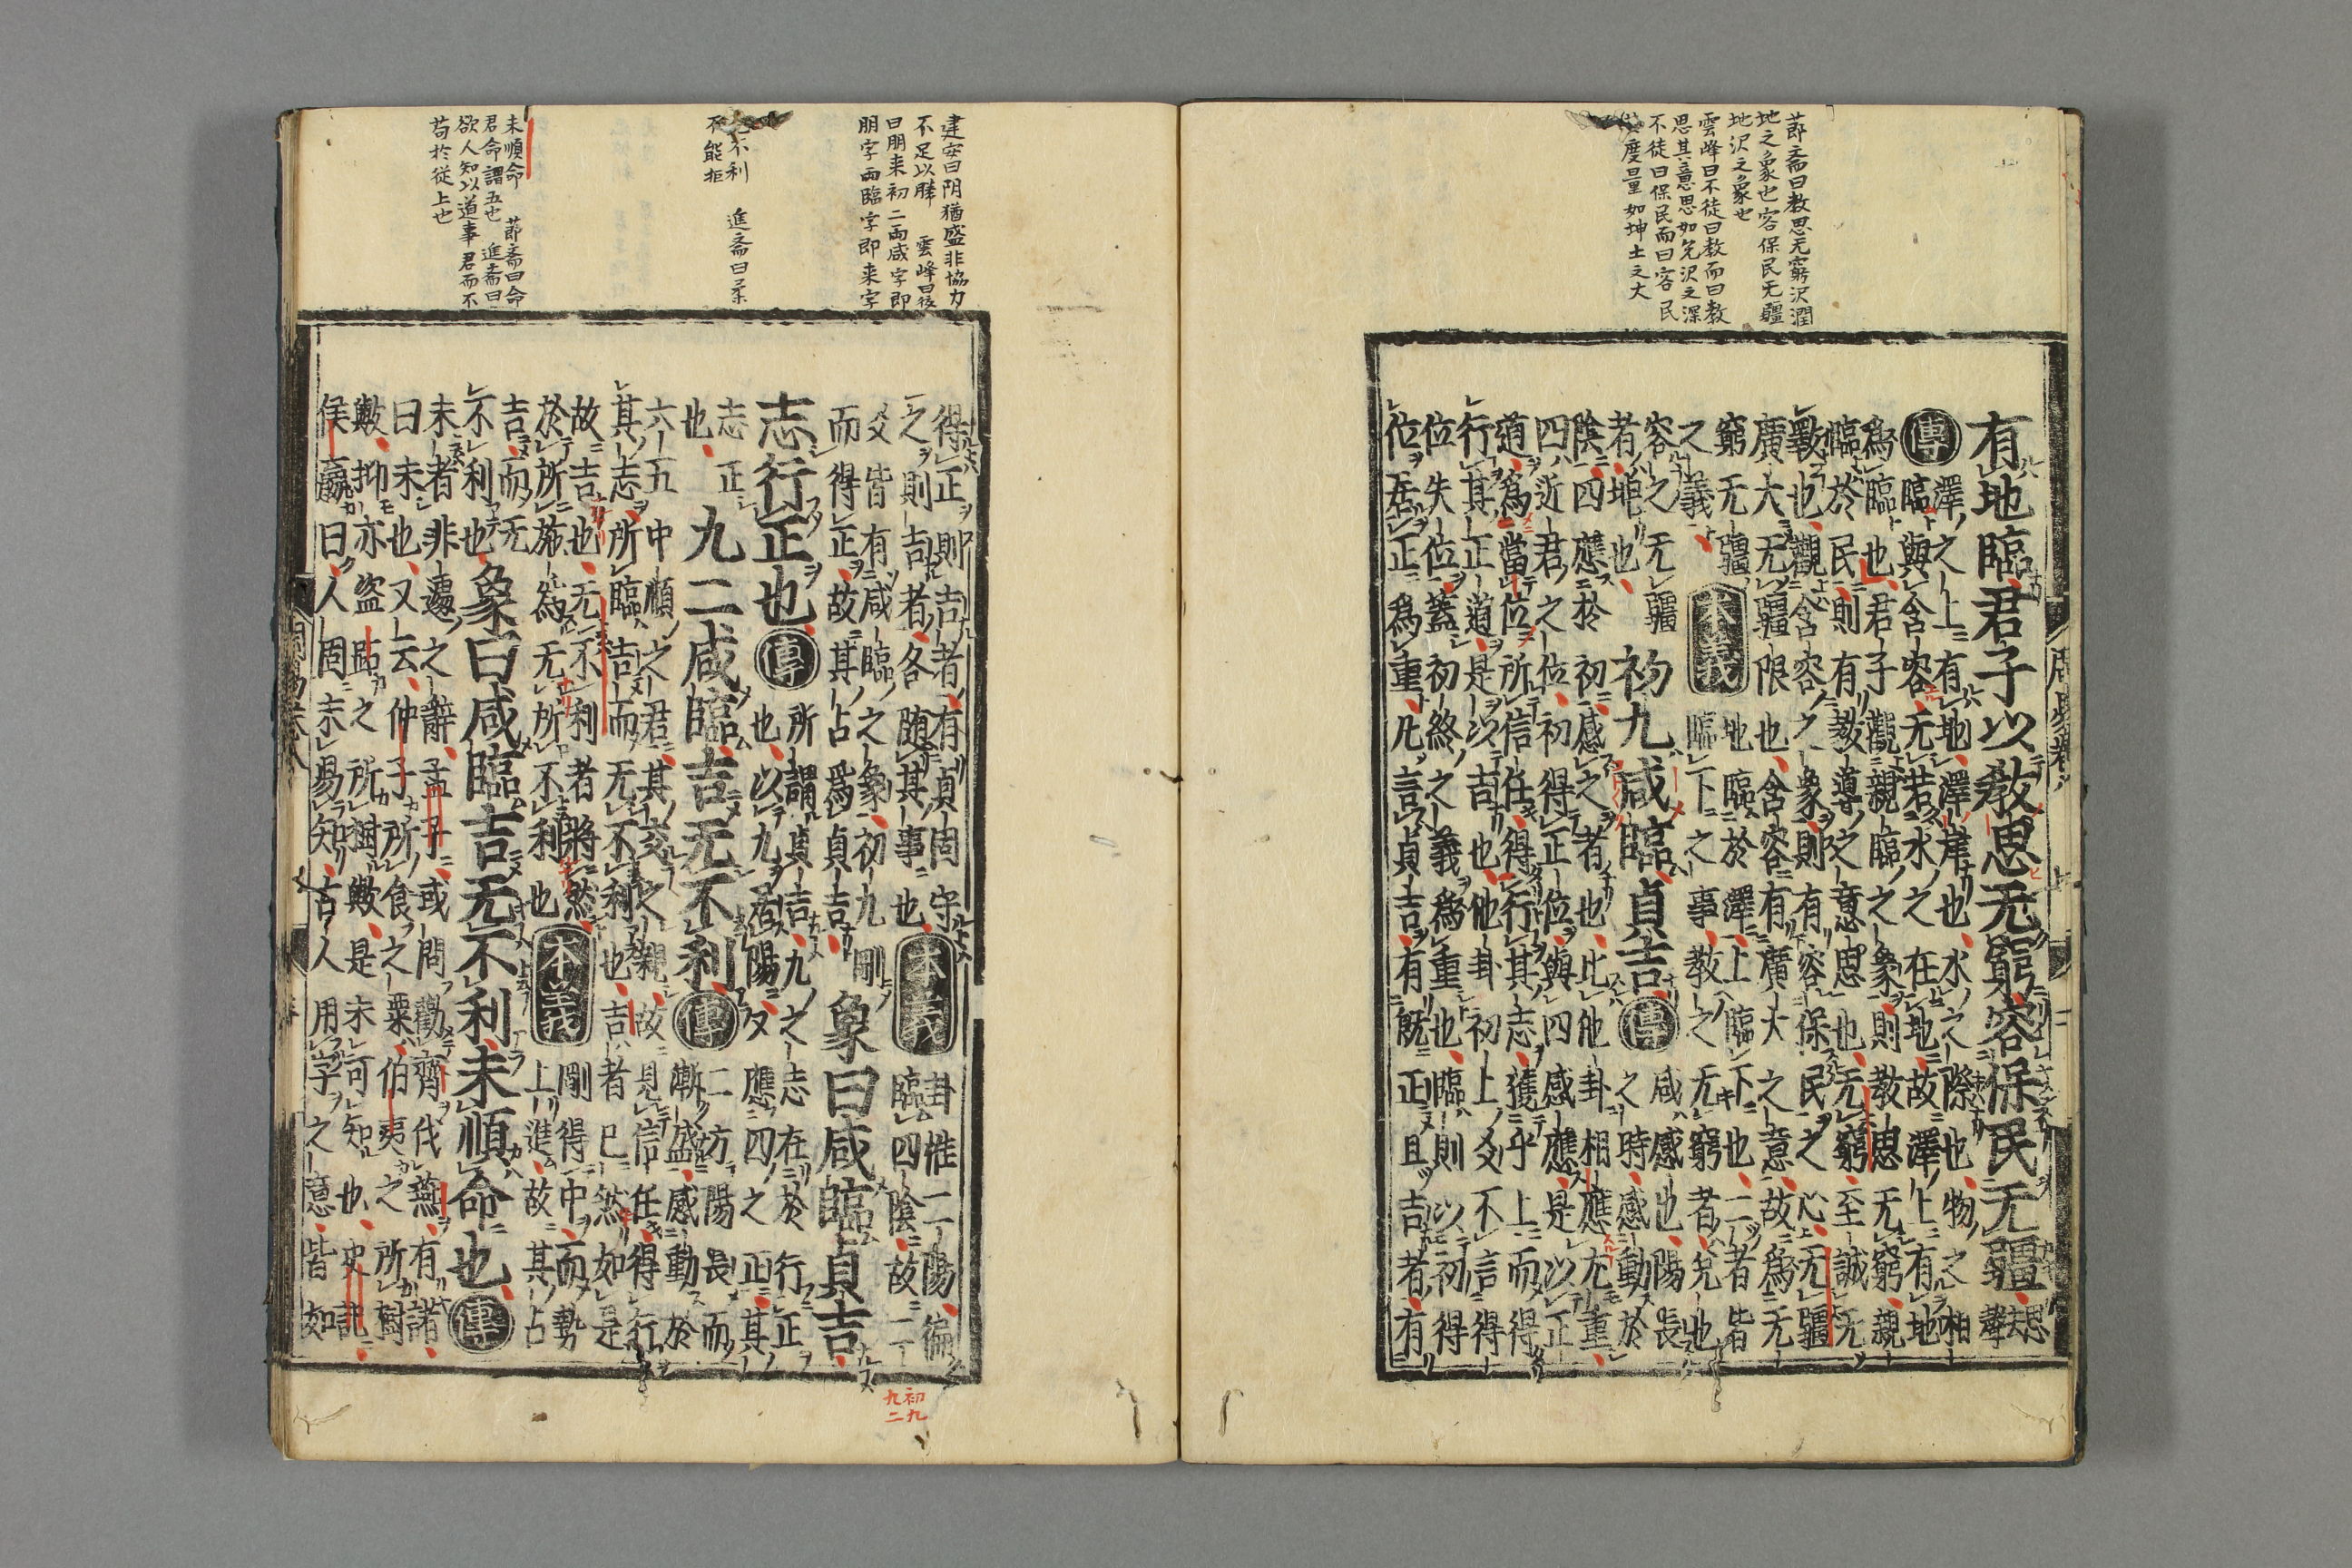 節斎曰教思无窮沢潤
地之象也容保民无疆
地沢之象也
雲峰曰不徒曰教而曰教
思其意思如兌沢之深
不徒曰保民而曰容民
度量如坤土之大
有地臨君子以教思无窮容保民无疆 思去聲
傳 澤之上有地澤岸也水之際也物之相
臨與含容无若水之在地故澤上有地
為臨也君子觀親臨之象則教思无窮親
臨於民則有教導之意思也无窮至誠无
斁也觀含容之象則有容保民之心无疆
廣大无疆限也含容有廣大之意故為无
窮无疆
之義
本義
地臨於澤上臨下也二者皆
臨下之事教之无窮者兌也
容之无疆
者坤也
初九咸臨貞吉
傳
咸感也陽長
之時感動於
陰四應於初感之者也比他卦相應尤重
四近君之位初得正位與四感應是以正
道為當位所信任得行其志獲乎上而得
行其正道是以吉也他卦初上爻不言得
位失位蓋初終之義為重也臨則以初得
位居正為重凡言貞吉有既正且吉者有
建安曰阴猶盛非協力
不足以勝 雲峰曰復
曰朋来初二両咸字即
朋字両臨字即来字
不利 進斎曰柔
不能拒
未順命 節斎曰命
君命謂五也 進斎曰
欲人知以道事君而不
苟於従上也
得正則吉者有貞固守
之則吉者各随其事也
本義
卦惟二陽徧
臨四陰故二
爻皆有咸臨之象初九剛
而得正故其占爲貞吉
象曰咸臨貞吉
志行正也
傳
所謂貞吉九之志在於行正
也以九居陽又應四之正其
志正
也
九二咸臨吉无不利
傳
二方陽長而
漸盛感動於
六五中順之君其交之親故見信任得行
其志所臨吉而无不利也吉者已然如是
故吉也无不利者將然
於所施為无所不利也
本義
剛得中而勢
上進故其占
吉而无
不利也
象曰咸臨吉无不利未順命也
傳
未者非遽之辭孟子或問勸齊伐燕有諸
曰未也又云仲子所食之粟伯夷之所樹
歟抑亦盜跖之所樹歟是未可知也史記
侯嬴曰人固未易知古人用字之意皆如
初九
九二